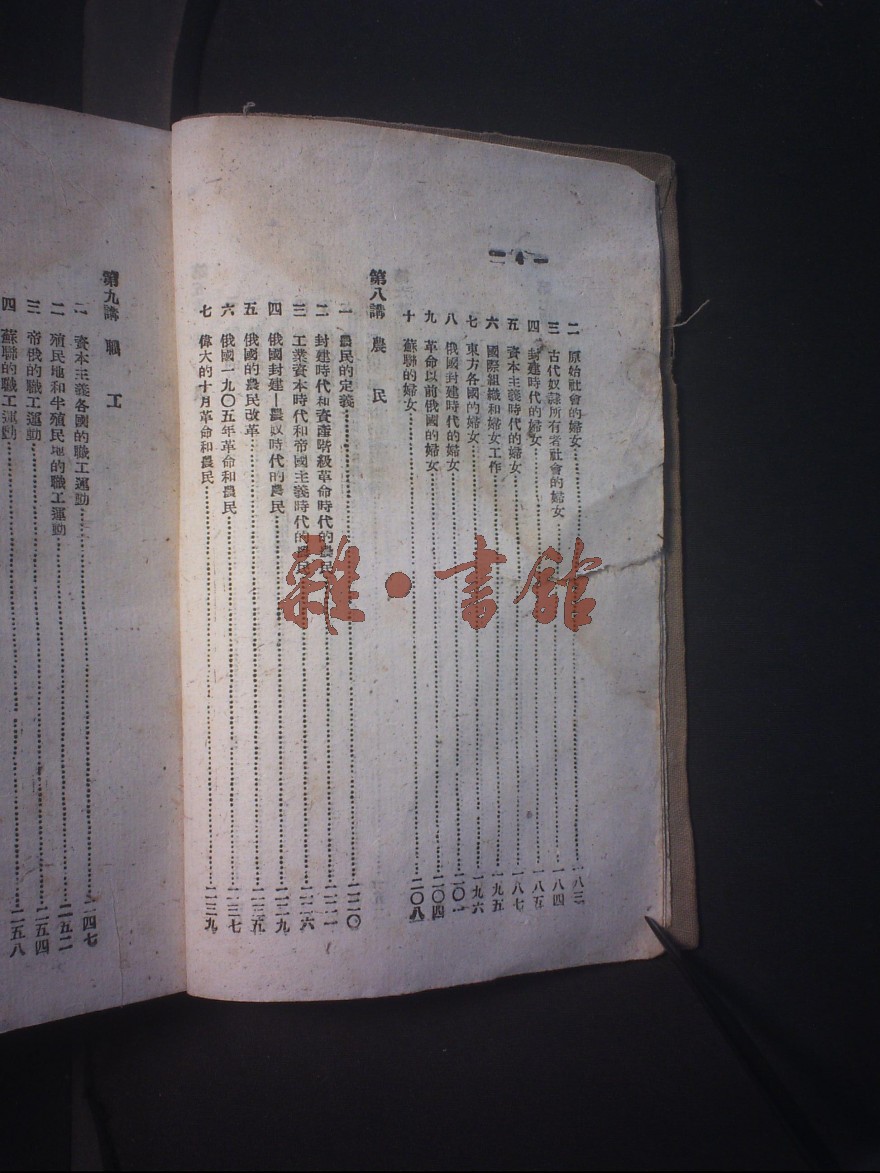 二 原始社會的婦女……一八三
三 古代奴隸所有者社會的婦女……一八四
四 封建時代的婦女……一八五
五 資本主義時代的婦女……一八七
六 國際組織和婦女工作……一九五
七 東方各國的婦女……一九六
八 俄國封建時代的婦女……二〇一
九 革命以前俄國的婦女……二〇四
十 蘇聯的婦女……二〇八
第八講 農民
一 農民的定義……二二〇
二 封建時代和資產階級革命時代的農民……二二一
三 工業資本時代和帝國主義時代的農民……二二六
四 俄國封建—農奴時代的農民……二二九
五 俄國的農民改革……二三五
六 俄國一九〇五年革命和農民……二三七
七 偉大的十月革命和農民……二三九
第九講 職工
一 資本主義各國的職工運動……二四七
二 殖民地和半殖民地的職工運動……二五二
三 帝俄的職工運動……二五四
四 蘇聯的職工運動……二五八
雜·書館